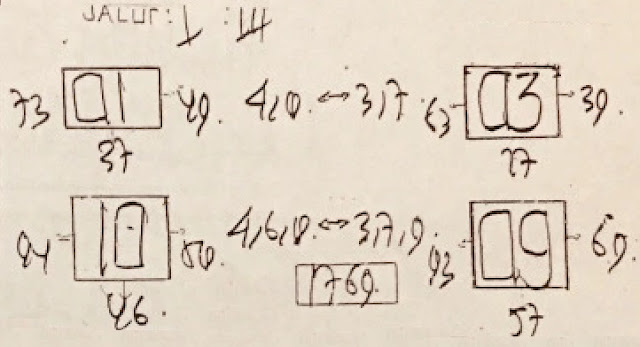 JALUR: I : III
73 01 49. 4,0. ↔ 3,7 63 03 39.
37 27
94 10 50. 4,6,0. ↔ 3,7,9. 93 09 69.
1769.
46. 57